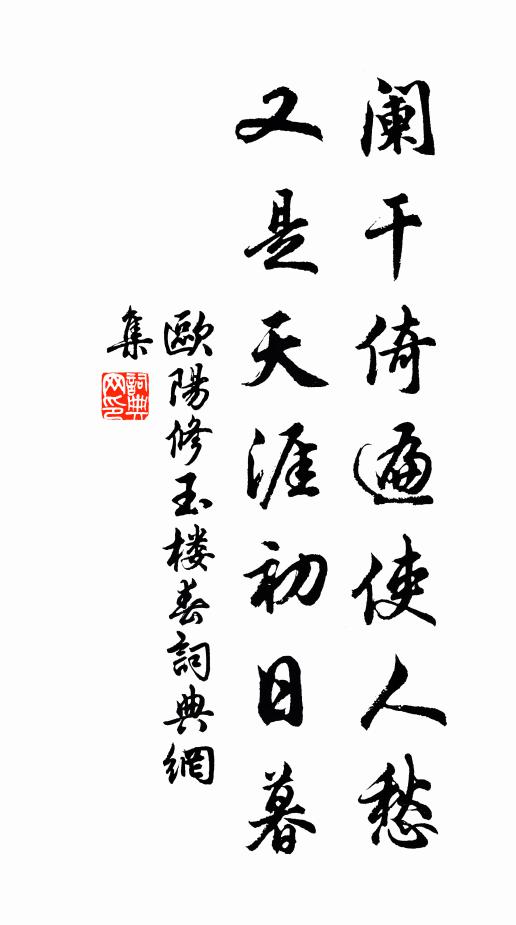 阑干倚遍使人愁
又是天涯初日暮
歐陽修玉楼春詞典網
集
詞典
网印